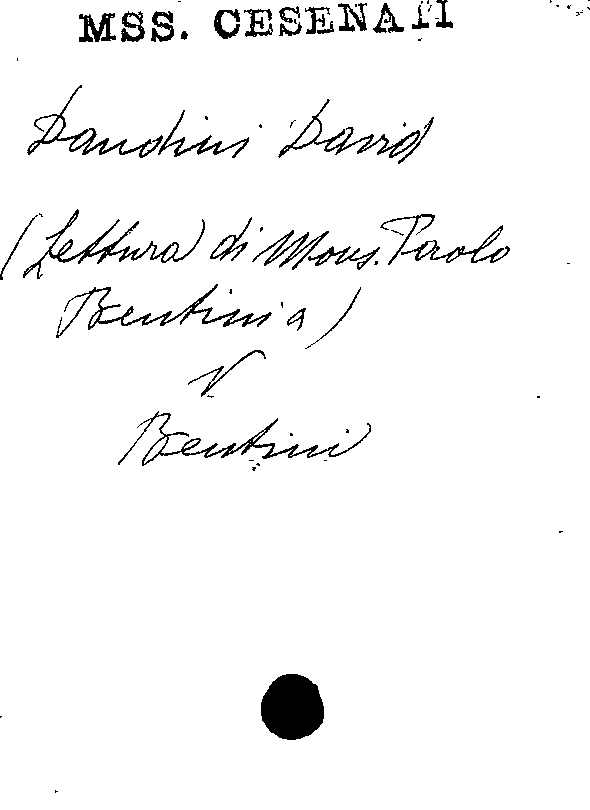 MSS. CESENATI
Dandini David
(Lettura) di Mons. Paolo
Bentini a)
V
Bentini